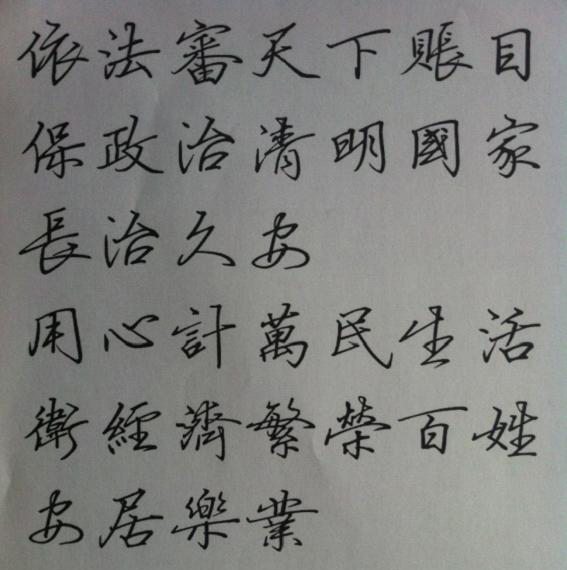 依法審天下賬目
保政治清明國家
長治久安
用心計萬民生活
衛經濟繁榮百姓
安居樂業